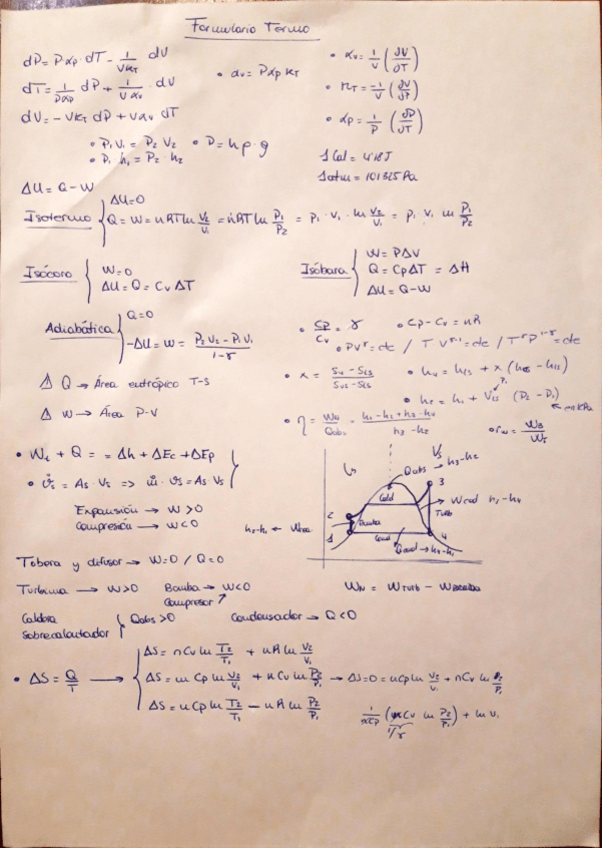 Formulario Termo
dP = Pαp · dT - 1/(VKT) dV
dT = 1/(Pαp) dP + 1/(Vαv) · dV
dV = -VKT dP + Vαv dT
• αv = Pαp KT
• αv = 1/V (∂V/∂T)
• KT = -1/V (∂V/∂P)
• αp = 1/P (∂P/∂T)
• P1 V1 = P2 V2 • P = hρ · g
• P1 h1 = P2 · h2
1 Cal = 4'18J
1atm = 101325 Pa
ΔU = Q - W
Isotermo { ΔU = 0
Q = W = nRT ln V2/V1 = nRT ln P1/P2 = P1 · V1 · ln V2/V1 = P1 V1 ln P1/P2
Isócoro { W = 0
ΔU = Q = Cv ΔT
Isóbara { W = PΔV
Q = CpΔT = ΔH
ΔU = Q - W
Adiabática { Q = 0
-ΔU = W = (P2V2 - P1V1)/(1-γ)
• Cp/Cv = γ • Cp - Cv = nR
• PVγ = cte / T Vγ-1 = cte / TγP1-γ = cte
⚠ Q → Área entrópico T-S
Δ W → Área P-V
• h2 = h1 + V (P2 - P1)
← en kPa
• Ws + Q = = Δh + ΔEc + ΔEp
Expansión → W > 0
Compresión → W < 0
Qabs → h3-h2
Cald
Bomba
Turb
Cond
1
2
3
4
Tobera y difusor → W = 0 / Q = 0
Turbina → W > 0 Bomba → W < 0
Compresor
WN = WTurb - WBomba
Caldera
Sobrecalentador } Qabs > 0 Condensador → Q < 0
• ΔS = Q/T → { ΔS = nCv ln T2/T1 + nR ln V2/V1
ΔS = nCp ln V2/V1 + nCv ln P2/P1 → ΔS = 0 = nCp ln V2/V1 + nCv ln P2/P1
ΔS = nCp ln T2/T1 - nR ln P2/P1
1/(nCp) (nCv ln P2/P1) + ln V
1/γ